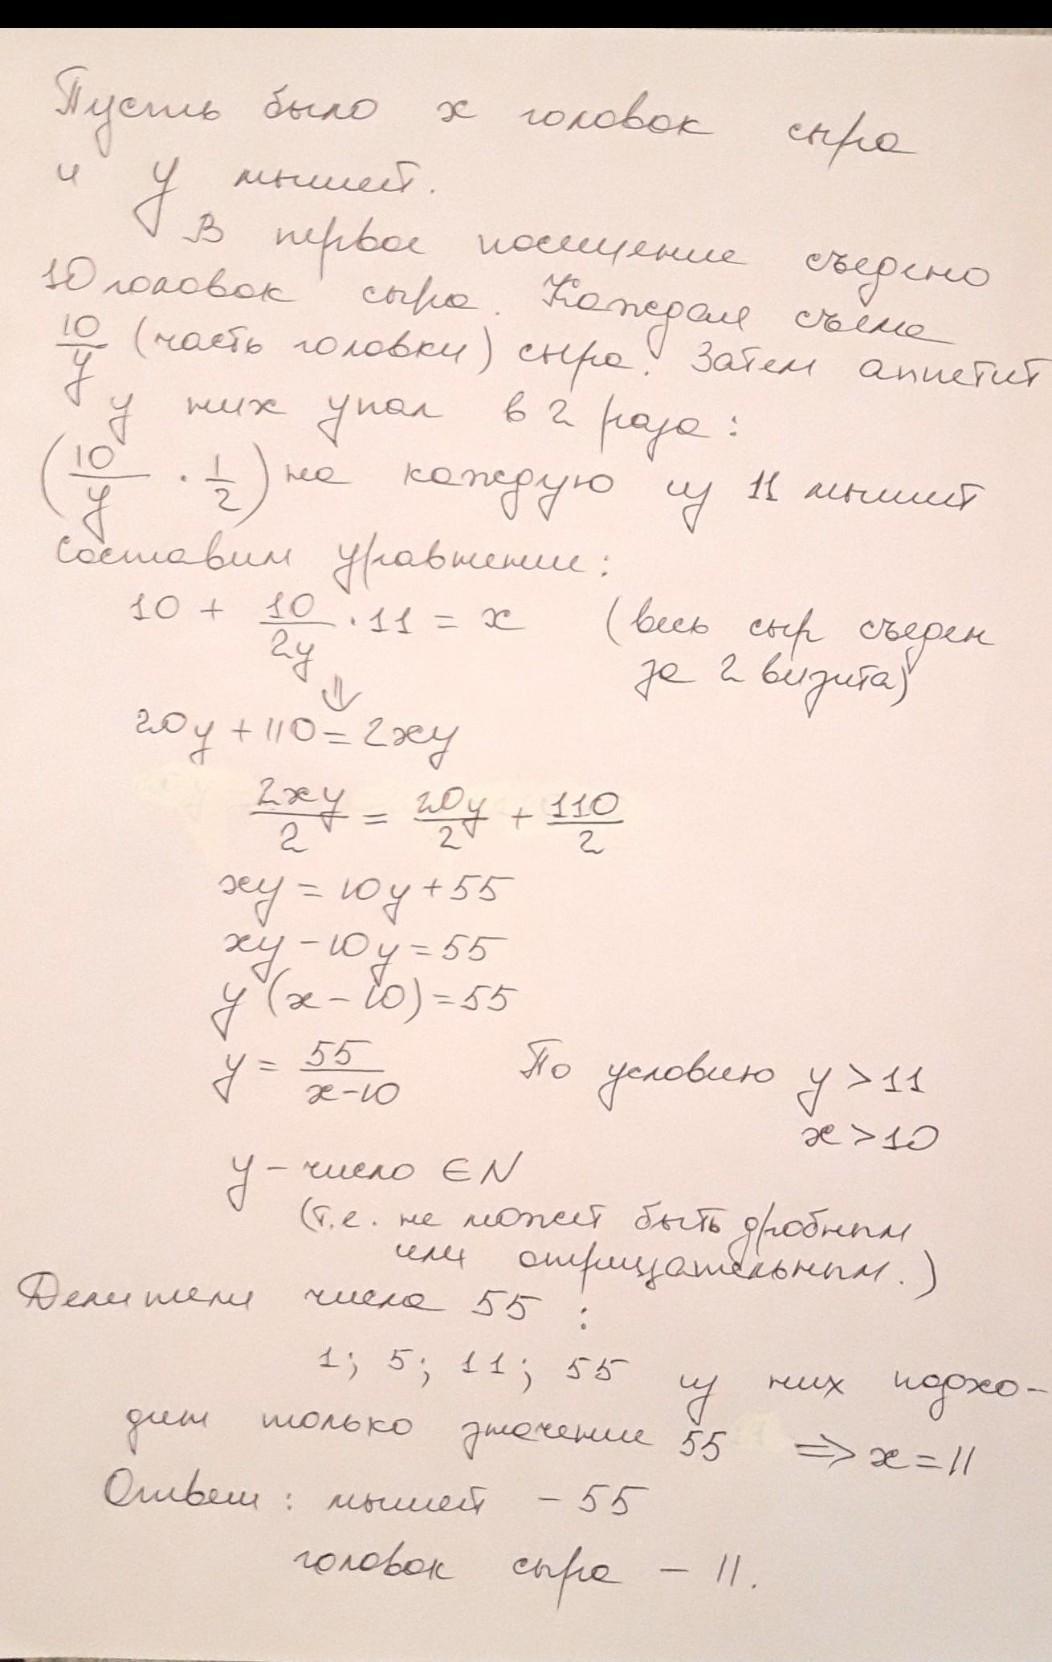 Пусть было x головок сыра
и y мышей.
В первое посещение съедено
10 головок сыра. Каждая съела
10/y (часть головки) сыра. Затем аппетит
у них упал в 2 раза:
(10/y · 1/2) на каждую из 11 мышит
Составим уравнение:
10 + 10/2y · 11 = x (весь сыр съеден
за 2 визита)
⇓
20y + 110 = 2xy
2xy/2 = 20y/2 + 110/2
xy = 10y + 55
xy - 10y = 55
y (x - 10) = 55
y = 55/x-10 По условию y > 11
x > 10
y - число ∈ N
(т.е. не может быть дробным
или отрицательным.)
Делители числа 55 :
1; 5; 11; 55 из них подхо-
дит только значение 55 ⇒ x = 11
Ответ: мышей - 55
головок сыра - 11.